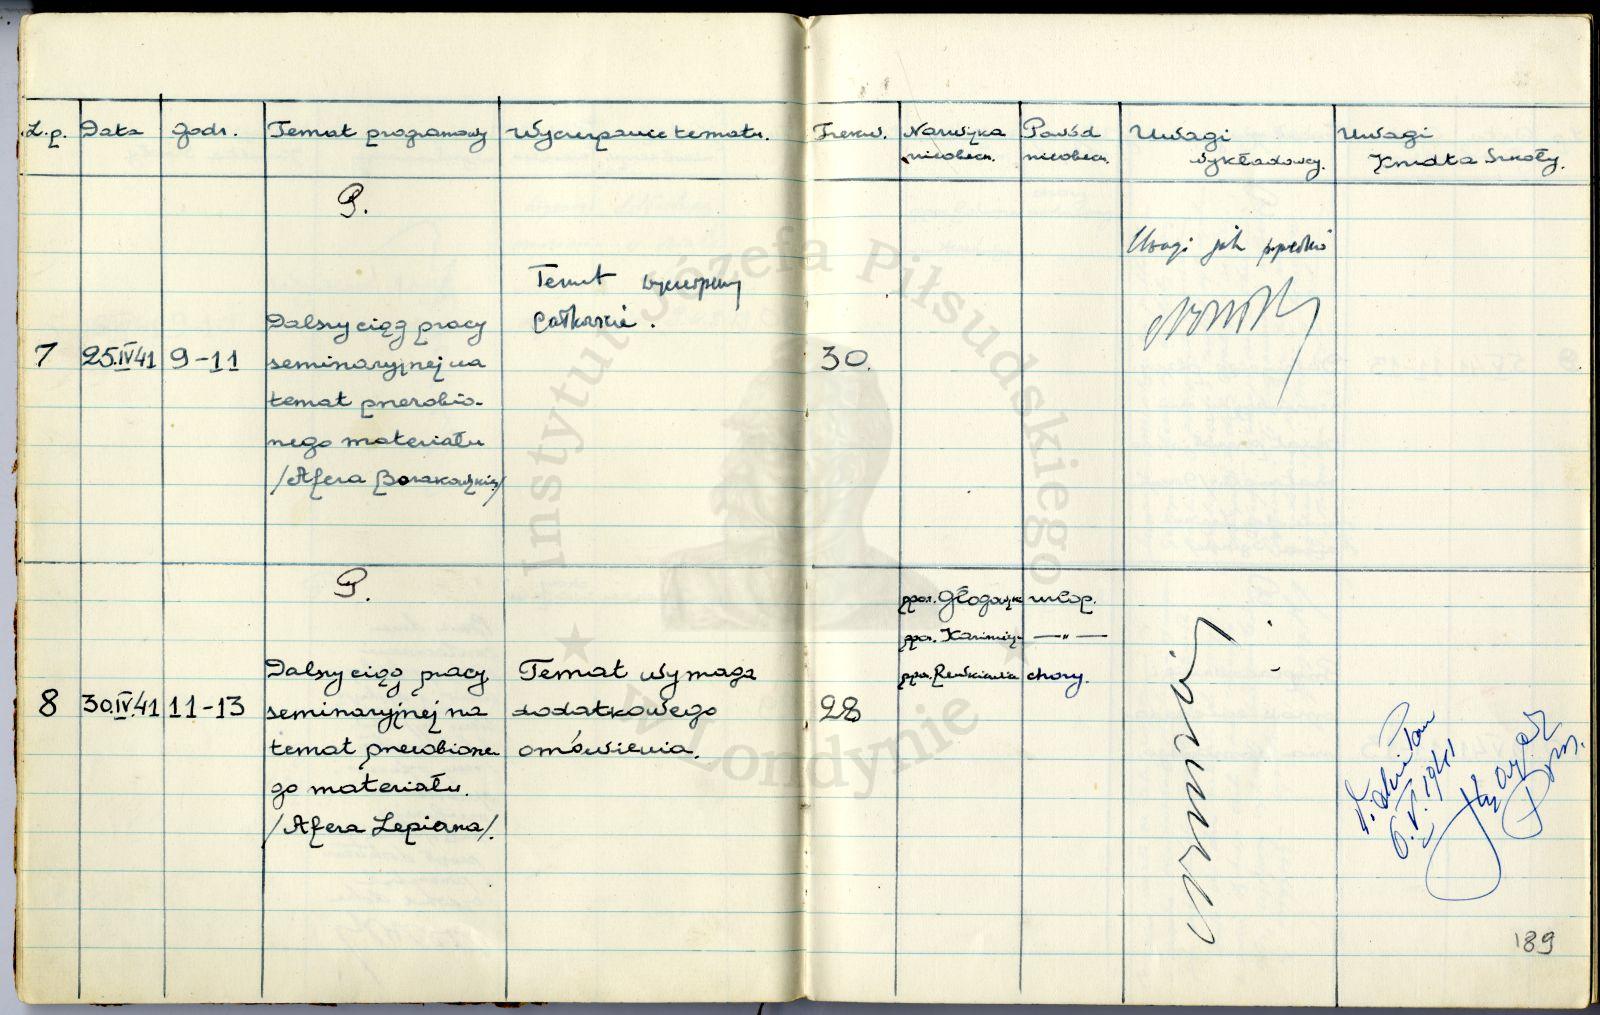 L.p. Data godz. Temat programowy Wyczerpanie tematu. Frekw. Nazwiska nieobecn. Powód nieobecn. Uwagi wykładowcy. Uwagi Kmdta Szkoły.
P.
Uwagi jak
Temat wyczerpany
całkowicie.
Dalszy ciąg pracy
7 25.IV.41 9-11 seminaryjnej na 30.
temat przerobio-
nego materiału
/Afera
P.
ppor. urlop.
ppor. —"—
ppor. chory.
Dalszy ciąg pracy Temat wymaga
8 30.IV.41 11-13 seminaryjnej na dodatkowego 28
temat przerobione- omówienia.
go materiału.
/Afera Lepiarza/.
6.V.1941
189
Instytut Józefa Piłsudskiego
w Londynie